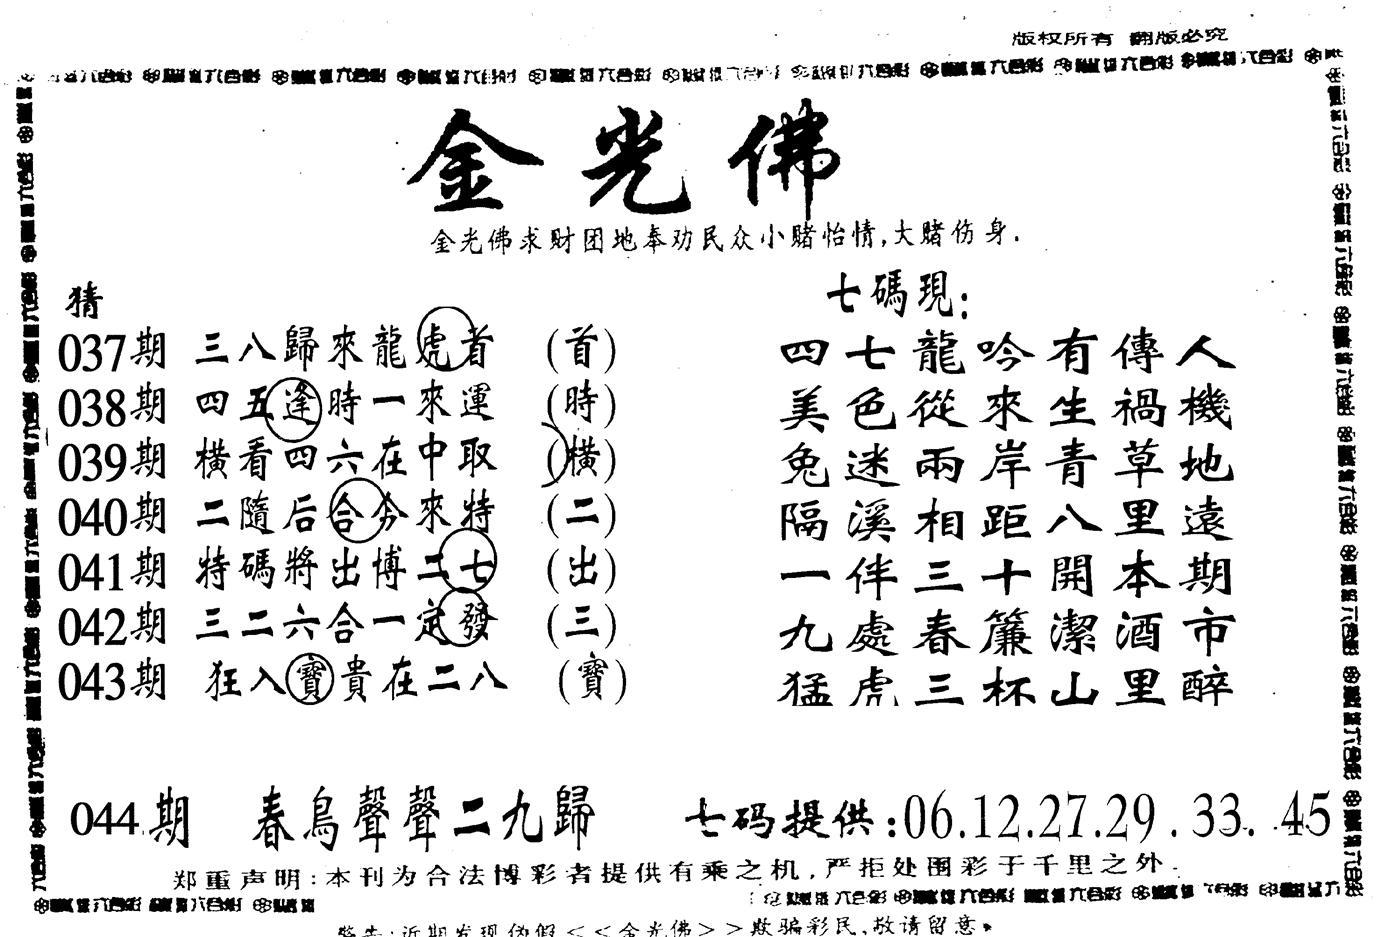 版权所有 翻版必究
金光佛
金光佛求财团地奉劝民众小赌怡情,大赌伤身.
猜
037期 三八歸來龍虎者 (首)
038期 四五逢時一來運 (時)
039期 橫看四六在中取 (橫)
040期 二隨后合今來特 (二)
041期 特碼將出博二七 (出)
042期 三二六合一定發 (三)
043期 狂入寶貴在二八 (寶)
七碼現:
四七龍吟有傳人
美色從來生禍機
兔迷兩岸青草地
隔溪相距八里遠
一伴三十開本期
九處春簾潔酒市
猛虎三杯山里醉
044.期 春鳥聲聲二九歸
七码提供:06.12.27.29.33.45
郑重声明:本刊为合法博彩者提供有乘之机,严拒处围彩于千里之外.
警告:近期发现伪假<<金光佛>>欺骗彩民,敬请留意.